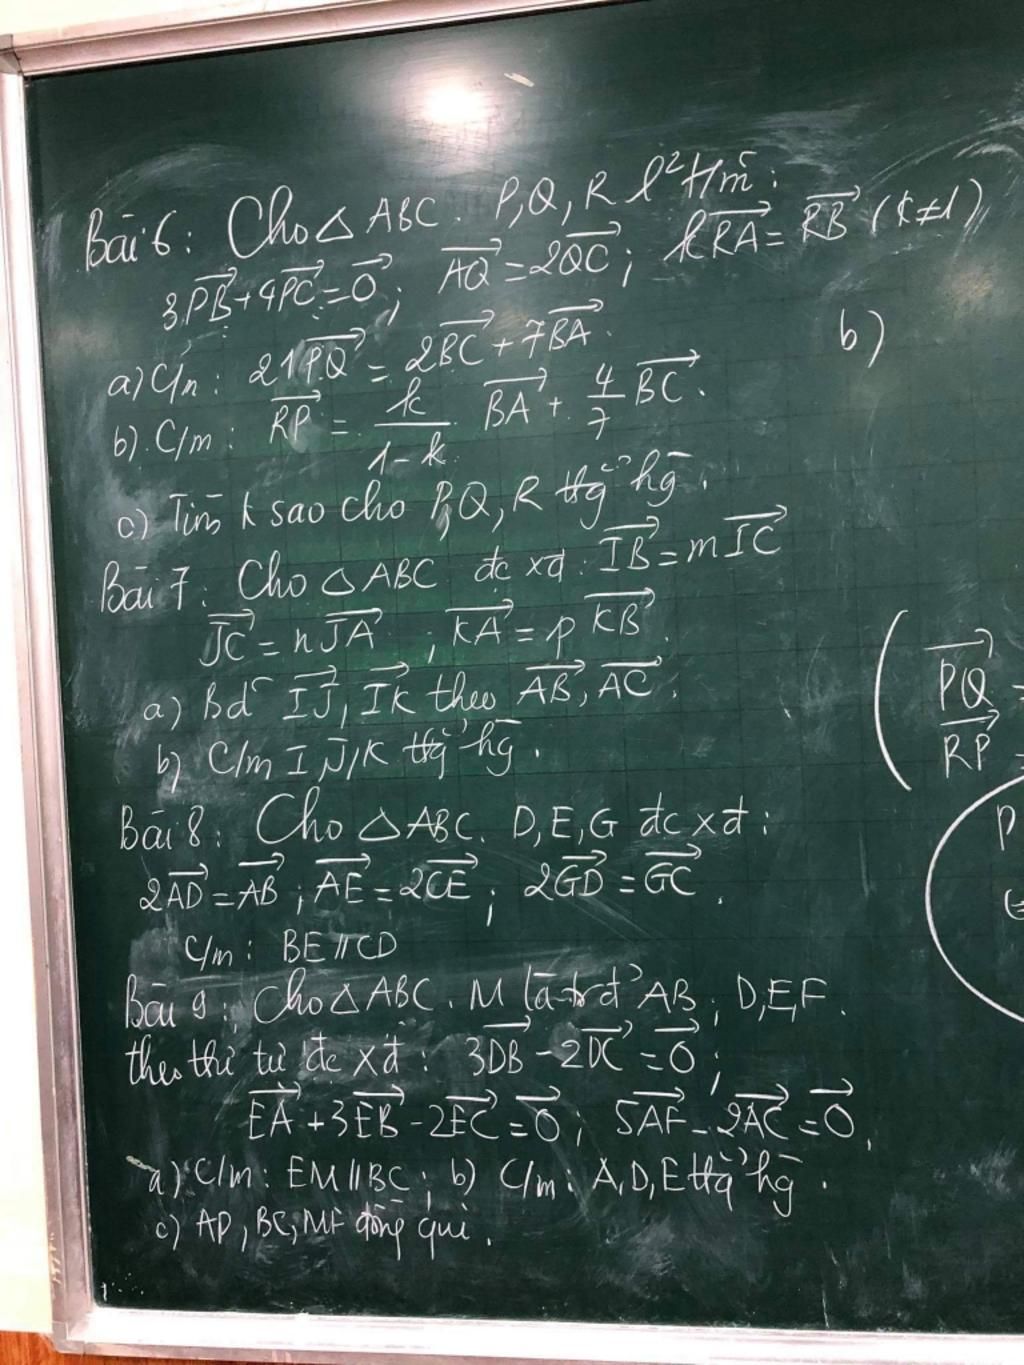 Bài 6: Cho △ABC. P,Q,R l² t/m:
3PB→+4PC→=0→; AQ→=2QC→; kRA→=RB→ (k≠1)
a) C/m: 21PQ→ = 2BC→+7BA→.
b) C/m: RP→ = k/(1-k) BA→ + 4/7 BC→.
c) Tìm k sao cho P,Q,R thg̉ hg̀.
Bài 7: Cho △ABC đc xđ: IB→=mIC→
JC→=nJA→; KA→=pKB→.
a) Bd̃ IJ→, IK→ theo AB→, AC→.
b) C/m I,J,K thg̉ hg̀.
Bài 8: Cho △ABC. D,E,G đc xđ:
2AD→=AB→; AE→=2CE→; 2GD→=GC→.
C/m: BE//CD
Bài 9: Cho △ABC. M là trđ̉ AB; D,E,F.
theo thứ tự đc xđ: 3DB→-2DC→=0→;
EA→+3EB→-2EC→=0→; 5AF→-2AC→=0→.
a) C/m: EM//BC; b) C/m: A,D,E thg̉ hg̀.
c) AD, BC, MF đồng qui.
b)
PQ→
RP→
P